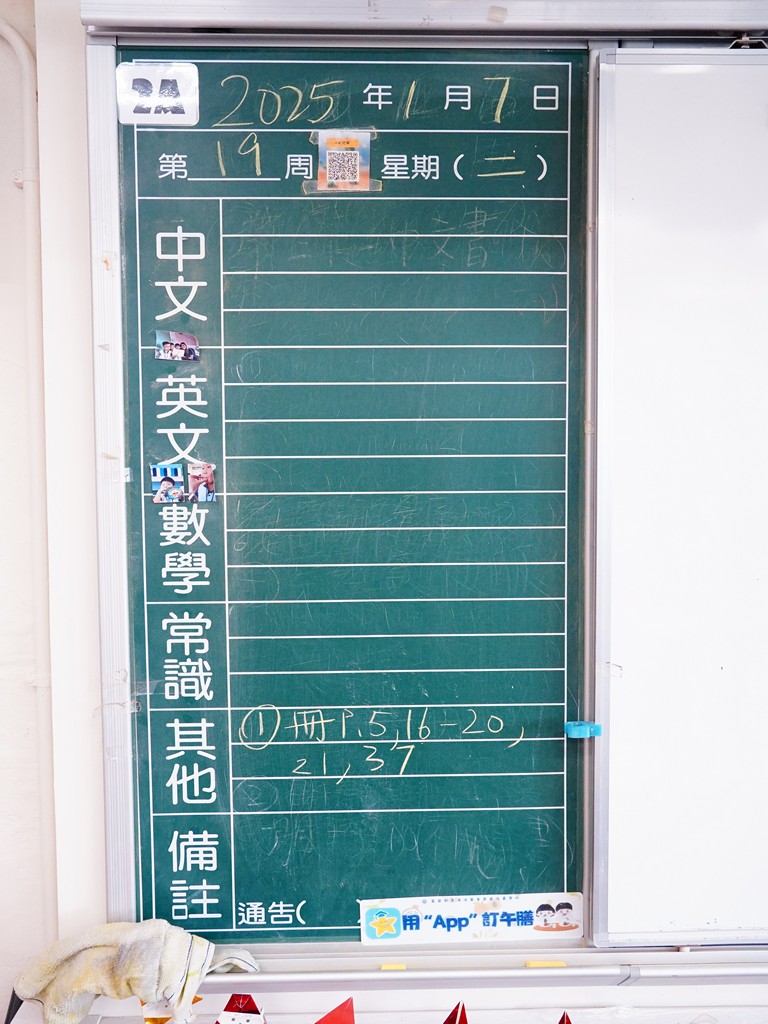 2A 2025年1月7日
第19周 星期(二)
中文
英文
數學
常識
其他 ① 冊P.5,16-20,
21,37
備註
通告(
用“App”訂午膳